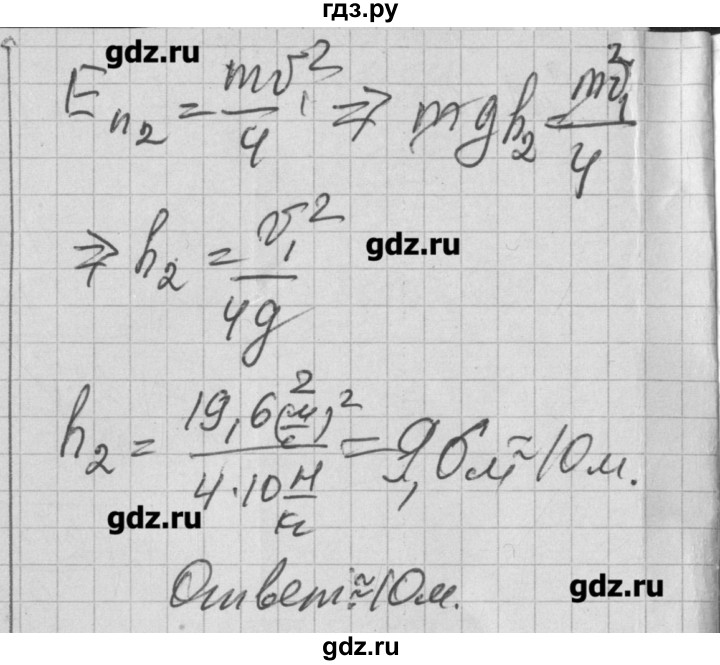 гдз.ру
gdz.ru
Eп₂ = mv₁²/4 ⇒ mgh₂ = mv₁²/4
gdz.ru
⇒ h₂ = v₁²/4g
h₂ = 19,6²(м/с)²/4·10 Н/кг = 9,6м ≈ 10м.
gdz.ru
Ответ: ≈10м.
gdz.ru
gdz.ru